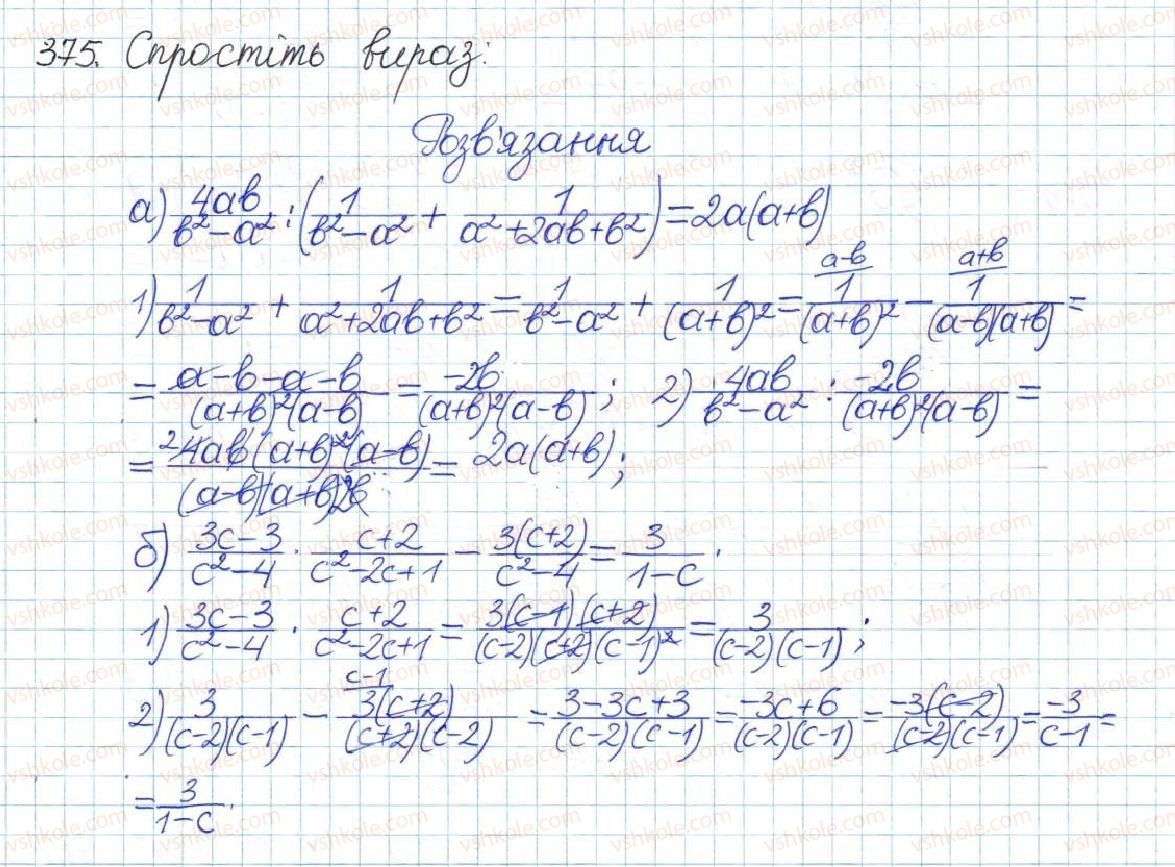 375. Спростіть вираз:
Розв'язання
а) 4ab/(b²-a²) : (1/(b²-a²) + 1/(a²+2ab+b²)) = 2a(a+b)
1) 1/(b²-a²) + 1/(a²+2ab+b²) = 1/(b²-a²) + 1/(a+b)² = (a-b)/ 1/(a+b)² - (a+b)/ 1/((a-b)(a+b)) =
= (a-b-a-b)/((a+b)²(a-b)) = -2b/((a+b)²(a-b)); 2) 4ab/(b²-a²) : -2b/((a+b)²(a-b)) =
= 2 4ab(a+b)²(a-b)/((a-b)(a+b)2b) = 2a(a+b);
б) (3c-3)/(c²-4) · (c+2)/(c²-2c+1) - 3(c+2)/(c²-4) = 3/(1-c).
1) (3c-3)/(c²-4) · (c+2)/(c²-2c+1) = 3(c-1)(c+2)/((c-2)(c+2)(c-1)²) = 3/((c-2)(c-1));
2) 3/((c-2)(c-1)) - (c-1)/ 3(c+2)/((c+2)(c-2)) = (3-3c+3)/((c-2)(c-1)) = (-3c+6)/((c-2)(c-1)) = -3(c-2)/((c-2)(c-1)) = -3/(c-1) =
= 3/(1-c).